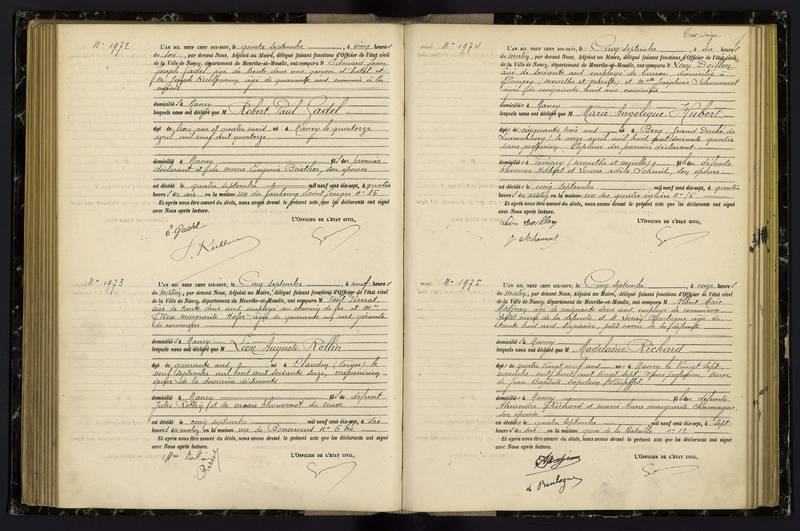 N° 1972
L'AN MIL NEUF CENT DIX-SEPT, le quatre septembre, à cinq heures
du soir, par devant Nous, Adjoint au Maire, délégué faisant fonctions d'Officier de l'état civil
de la Ville de Nancy, département de Meurthe-et-Moselle, ont comparu M Edouard
Joseph Gadel âgé de trente deux ans garçon d'hôtel et
M Joseph âgé de quarante ans commis à la
domicilié s à Nancy
lesquels nous ont déclaré que M Robert Paul Gadel
âgé de trois ans et quatre mois né à Nancy le quatorze
avril mil neuf cent quatorze,
domicilié à Nancy fils du premier
déclarant et de Marie Eugénie son épouse
est décédé le quatre septembre mil neuf cent dix-sept, à quatre
heures du soir en la maison rue du faubourg Saint Georges n° 25
Et après nous être assuré du décès, nous avons dressé le présent acte que les déclarants ont signé
avec Nous après lecture.
L'OFFICIER DE L'ÉTAT CIVIL,
E Gadel
N° 1973
L'AN MIL NEUF CENT DIX-SEPT, le Cinq Septembre, à neuf heures
du matin, par devant Nous, Adjoint au Maire, délégué faisant fonctions d'Officier de l'état civil
de la Ville de Nancy, département de Meurthe-et-Moselle, ont comparu M Paul
âgé de trente deux ans employé au chemin de fer et M
Marguerite âgée de quarante neuf ans gérante
de
domicilié s à Nancy
lesquels nous ont déclaré que M Léon Auguste Rollin
âgé de quarante ans né à Claudon (Vosges) le
neuf septembre mil huit cent soixante seize, mécanicien
époux de la deuxième déclarante
domicilié à Nancy fils de défunt
Jules Rollin et de Marie sa veuve
est décédé le cinq septembre mil neuf cent dix-sept, à six
heures du matin, en la maison rue de Bonsecours N°
Et après nous être assuré du décès, nous avons dressé le présent acte que les déclarants ont signé
avec Nous après lecture.
L'OFFICIER DE L'ÉTAT CIVIL,
N° 1974
L'AN MIL NEUF CENT DIX-SEPT, le Cinq Septembre, à dix heures
du matin, par devant Nous, Adjoint au Maire, délégué faisant fonctions d'Officier de l'état civil
de la Ville de Nancy, département de Meurthe-et-Moselle, ont comparu M Léon
âgé de soixante ans employé de bureau domicilié à
(Meurthe et Moselle) et Joséphine
âgée de cinquante huit ans
domicilié à Nancy
lesquels nous ont déclaré que M Marie Angélique Hubert
âgée de cinquante trois ans née à Berg, Grand Duché de
Luxembourg, le onze avril mil huit cent soixante quatre
sans profession Epouse du premier déclarant
domiciliée à (Meurthe et Moselle) fille de défunts
Thomas Hubert et Louise Adèle Schmit, son épouse
est décédée le cinq septembre mil neuf cent dix-sept, à quatre
heures du matin, en la maison rue des quatre églises n°
Et après nous être assuré du décès, nous avons dressé le présent acte que les déclarants ont signé
avec Nous après lecture.
L'OFFICIER DE L'ÉTAT CIVIL,
N° 1975
L'AN MIL NEUF CENT DIX-SEPT, le Cinq Septembre, à onze heures
du matin, par devant Nous, Adjoint au Maire, délégué faisant fonctions d'Officier de l'état civil
de la Ville de Nancy, département de Meurthe-et-Moselle, ont comparu M Albert Marie
âgé de cinquante deux ans employé de commerce
de la défunte et M Louis Boulogne âgé de
trente huit ans tapissier, petit neveu de la défunte
domicilié s à Nancy
lesquels nous ont déclaré que M Madelaine Richard
âgée de quatre vingt neuf ans née à Nancy le vingt sept
mil huit cent vingt sept, sans profession, veuve
de Jean Baptiste Napoléon
domiciliée à Nancy fille de défunts
Alexandre Richard et Marie Anne Marguerite
son épouse
est décédée le quatre septembre mil neuf cent dix-sept, à sept
heures du soir en la maison quai de la Bataille n° 12
Et après nous être assuré du décès, nous avons dressé le présent acte que les déclarants ont signé
avec Nous après lecture.
L'OFFICIER DE L'ÉTAT CIVIL,
L Boulogne